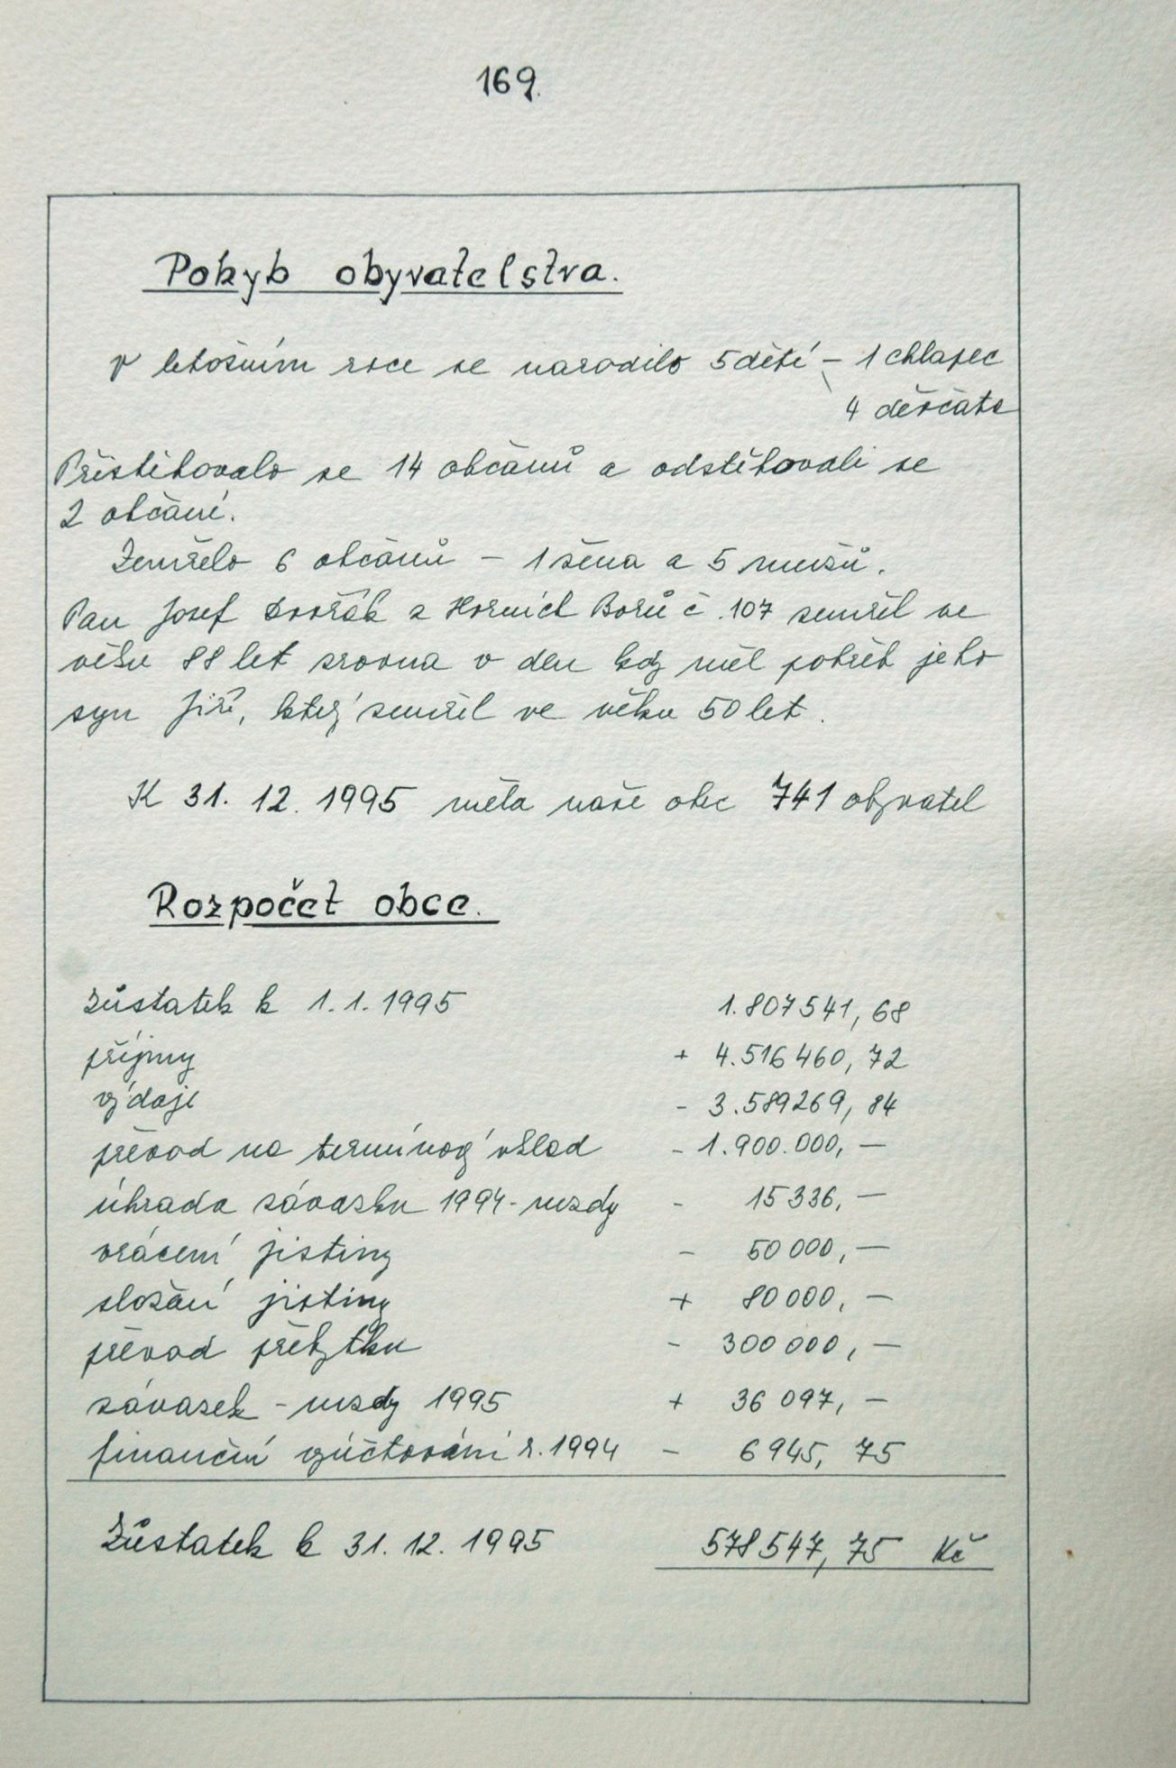 169.
Pohyb obyvatelstva.
V letošním roce se narodilo 5 dětí – 1 chlapec
4 děvčata
Přistěhovalo se 14 občanů a odstěhovali se
2 občané.
Zemřelo 6 občanů – 1 žena a 5 mužů.
Pan Josef Dvořák z Horních Borů č. 107 zemřel ve
věku 88 let zrovna v den kdy měl pohřeb jeho
syn Jiří, který zemřel ve věku 50 let.
K 31. 12. 1995 měla naše obec 741 obyvatel
Rozpočet obce.
Zůstatek k 1. 1. 1995 1.807541,68
příjmy + 4.516460,72
výdaje - 3.589269,84
převod na termínový vklad - 1.900.000,—
úhrada závazku 1994 - mzdy - 15336,—
vrácení jistiny - 50000,—
složání jistiny + 80000,—
převod přebytku - 300000,—
závazek - mzdy 1995 + 36097,—
finanční vyúčtování r. 1994 - 6945,75
Zůstatek k 31. 12. 1995 578547,75 Kč